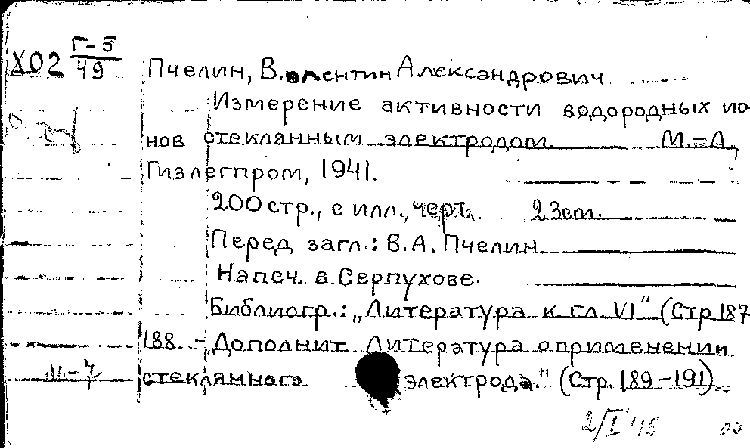 Х02 Г-5/49
Пчелин, Валентин Александрович
Измерение активности водородных ио
нов стеклянным электродом. М.-Л.,
Гизлегпром, 1941.
200 стр., с илл., черт. 23 см.
Перед загл.: В.А. Пчелин.
Напеч. в Серпухове.
Библиогр.: „Литература к гл. VI" (Стр 187
188. - Дополнит. литература о применении
стеклянного электрода." (Стр. 189-191)
2/I 45